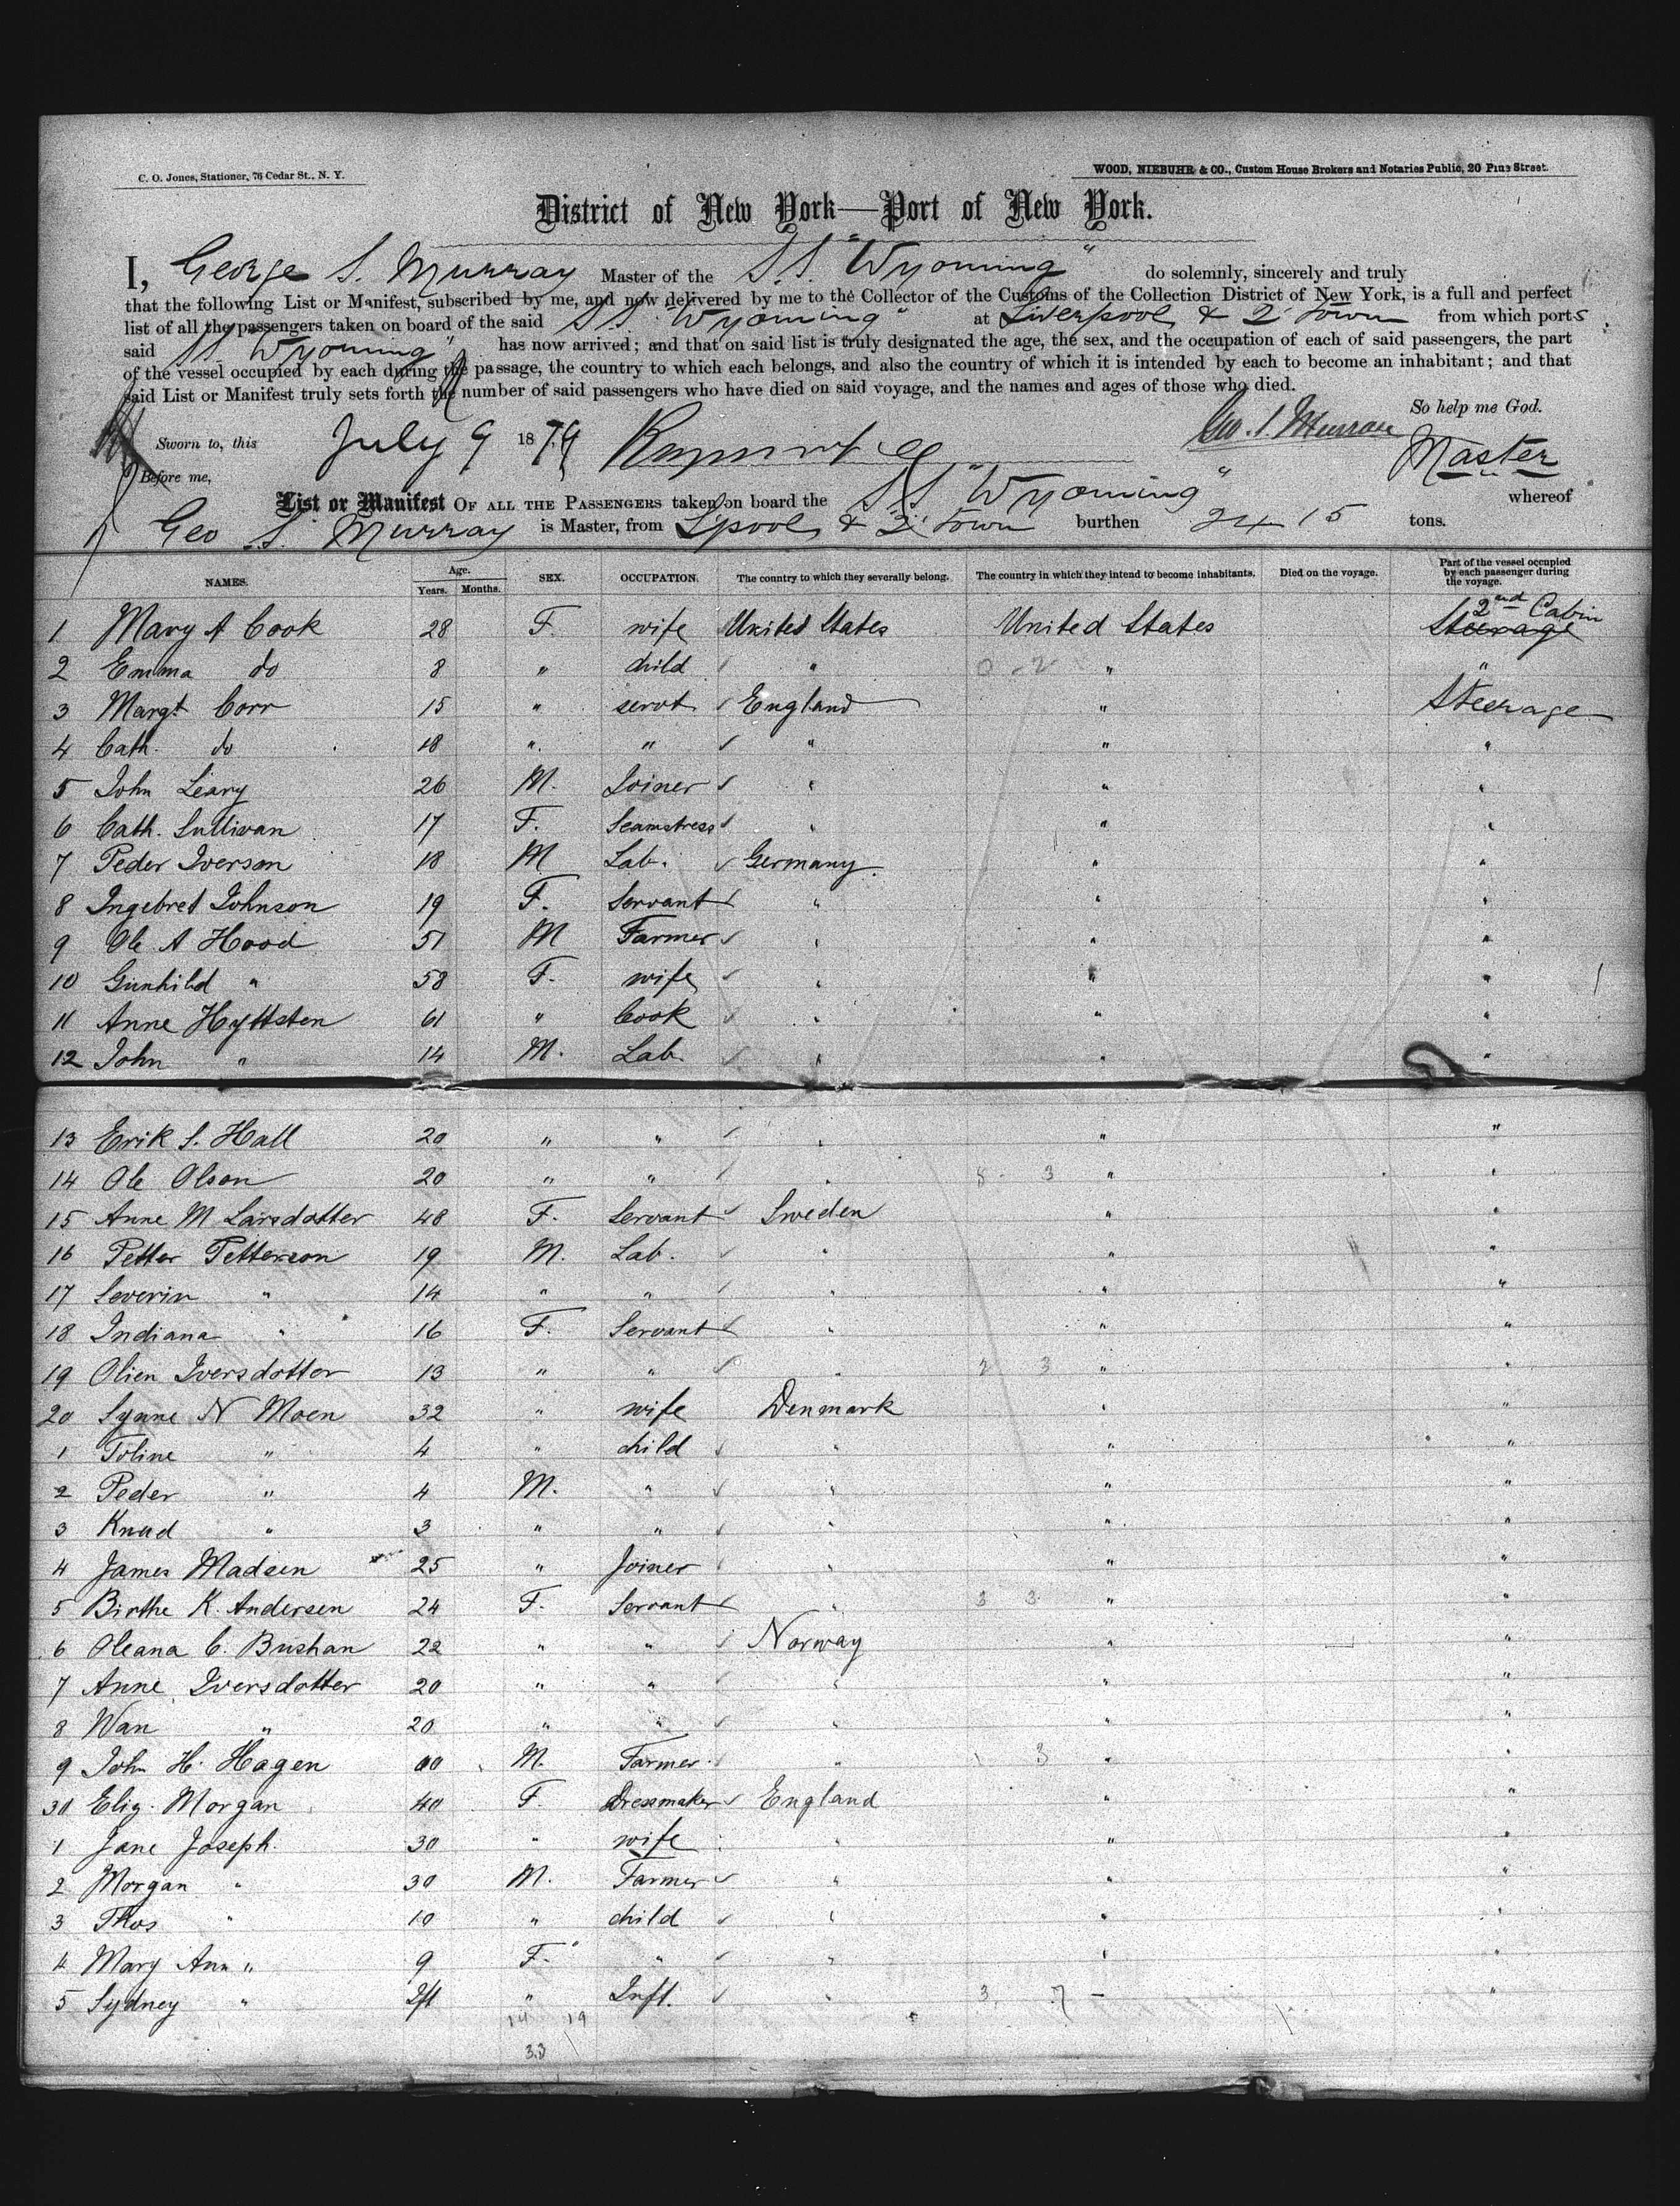 C. O. Jones, Stationer, 76 Cedar St., N. Y.
WOOD, NIEBUHR & CO., Custom House Brokers and Notaries Public, 20 Pine Street.
District of New York—Port of New York.
I, George S. Murray Master of the S.S. "Wyoming" do solemnly, sincerely and truly
that the following List or Manifest, subscribed by me, and now delivered by me to the Collector of the Customs of the Collection District of New York, is a full and perfect
list of all the passengers taken on board of the said SS "Wyoming" at Liverpool & Q'town from which ports
said SS "Wyoming" has now arrived; and that on said list is truly designated the age, the sex, and the occupation of each of said passengers, the part
of the vessel occupied by each during the passage, the country to which each belongs, and also the country of which it is intended by each to become an inhabitant; and that
said List or Manifest truly sets forth the number of said passengers who have died on said voyage, and the names and ages of those who died.
So help me God.
Sworn to, this July 9 1879 Geo. S. Murray
Before me, Master
List or Manifest OF ALL THE PASSENGERS taken on board the SS "Wyoming" whereof
Geo S. Murray is Master, from Lpool & Q'town burthen 2415 tons.
NAMES. Age. Years. Months. SEX. OCCUPATION. The country to which they severally belong. The country in which they intend to become inhabitants. Died on the voyage. Part of the vessel occupied by each passenger during the voyage.
1 Mary A Cook 28 F. wife United States United States 2nd Cabin Steerage
2 Emma do 8 " child " 0-2 " "
3 Margt Corr 15 " servt England " Steerage
4 Cath. do 18 " " " " "
5 John Leary 26 M. Joiner " " "
6 Cath. Sullivan 17 F. Seamstress " " "
7 Peder Iverson 18 M Lab. Germany " "
8 Ingebret Johnson 19 F. Servant " " "
9 Ole A Hood 51 M Farmer " " "
10 Gunhild " 58 F. wife " " "
11 Anne Hyttsten 61 " Cook " " "
12 John " 14 M. Lab. " " "
13 Erik S. Hall 20 " " " " "
14 Ole Olson 20 " " " 8 3 " "
15 Anne M Larsdotter 48 F. Servant Sweden " "
16 Petter Petterson 19 M. Lab. " " "
17 Severin " 14 " " " " "
18 Indiana " 16 F. Servant " " "
19 Olien Iversdotter 13 " " " 2 3 " "
20 Synne N Moen 32 " wife Denmark " "
1 Toline " 4 " child " " "
2 Peder " 4 M. " " " "
3 Knud " 3 " " " " "
4 James Madsen 25 " Joiner " " "
5 Birthe K. Andersen 24 F. Servant " 3 3 " "
6 Oleana C. Bushan 22 " " Norway " "
7 Anne Iversdotter 20 " " " " "
8 Wan " 20 " " " " "
9 John H. Hagen M. Farmer " 3 " "
30 Eliz. Morgan 40 F. Dressmaker England " "
1 Jane Joseph 30 " wife " " "
2 Morgan " 30 M. Farmer " " "
3 Thos " 10 " child " " "
4 Mary Ann " 9 F. " " " "
5 Sydney " Inft. " 3 7 — "
14 19
33